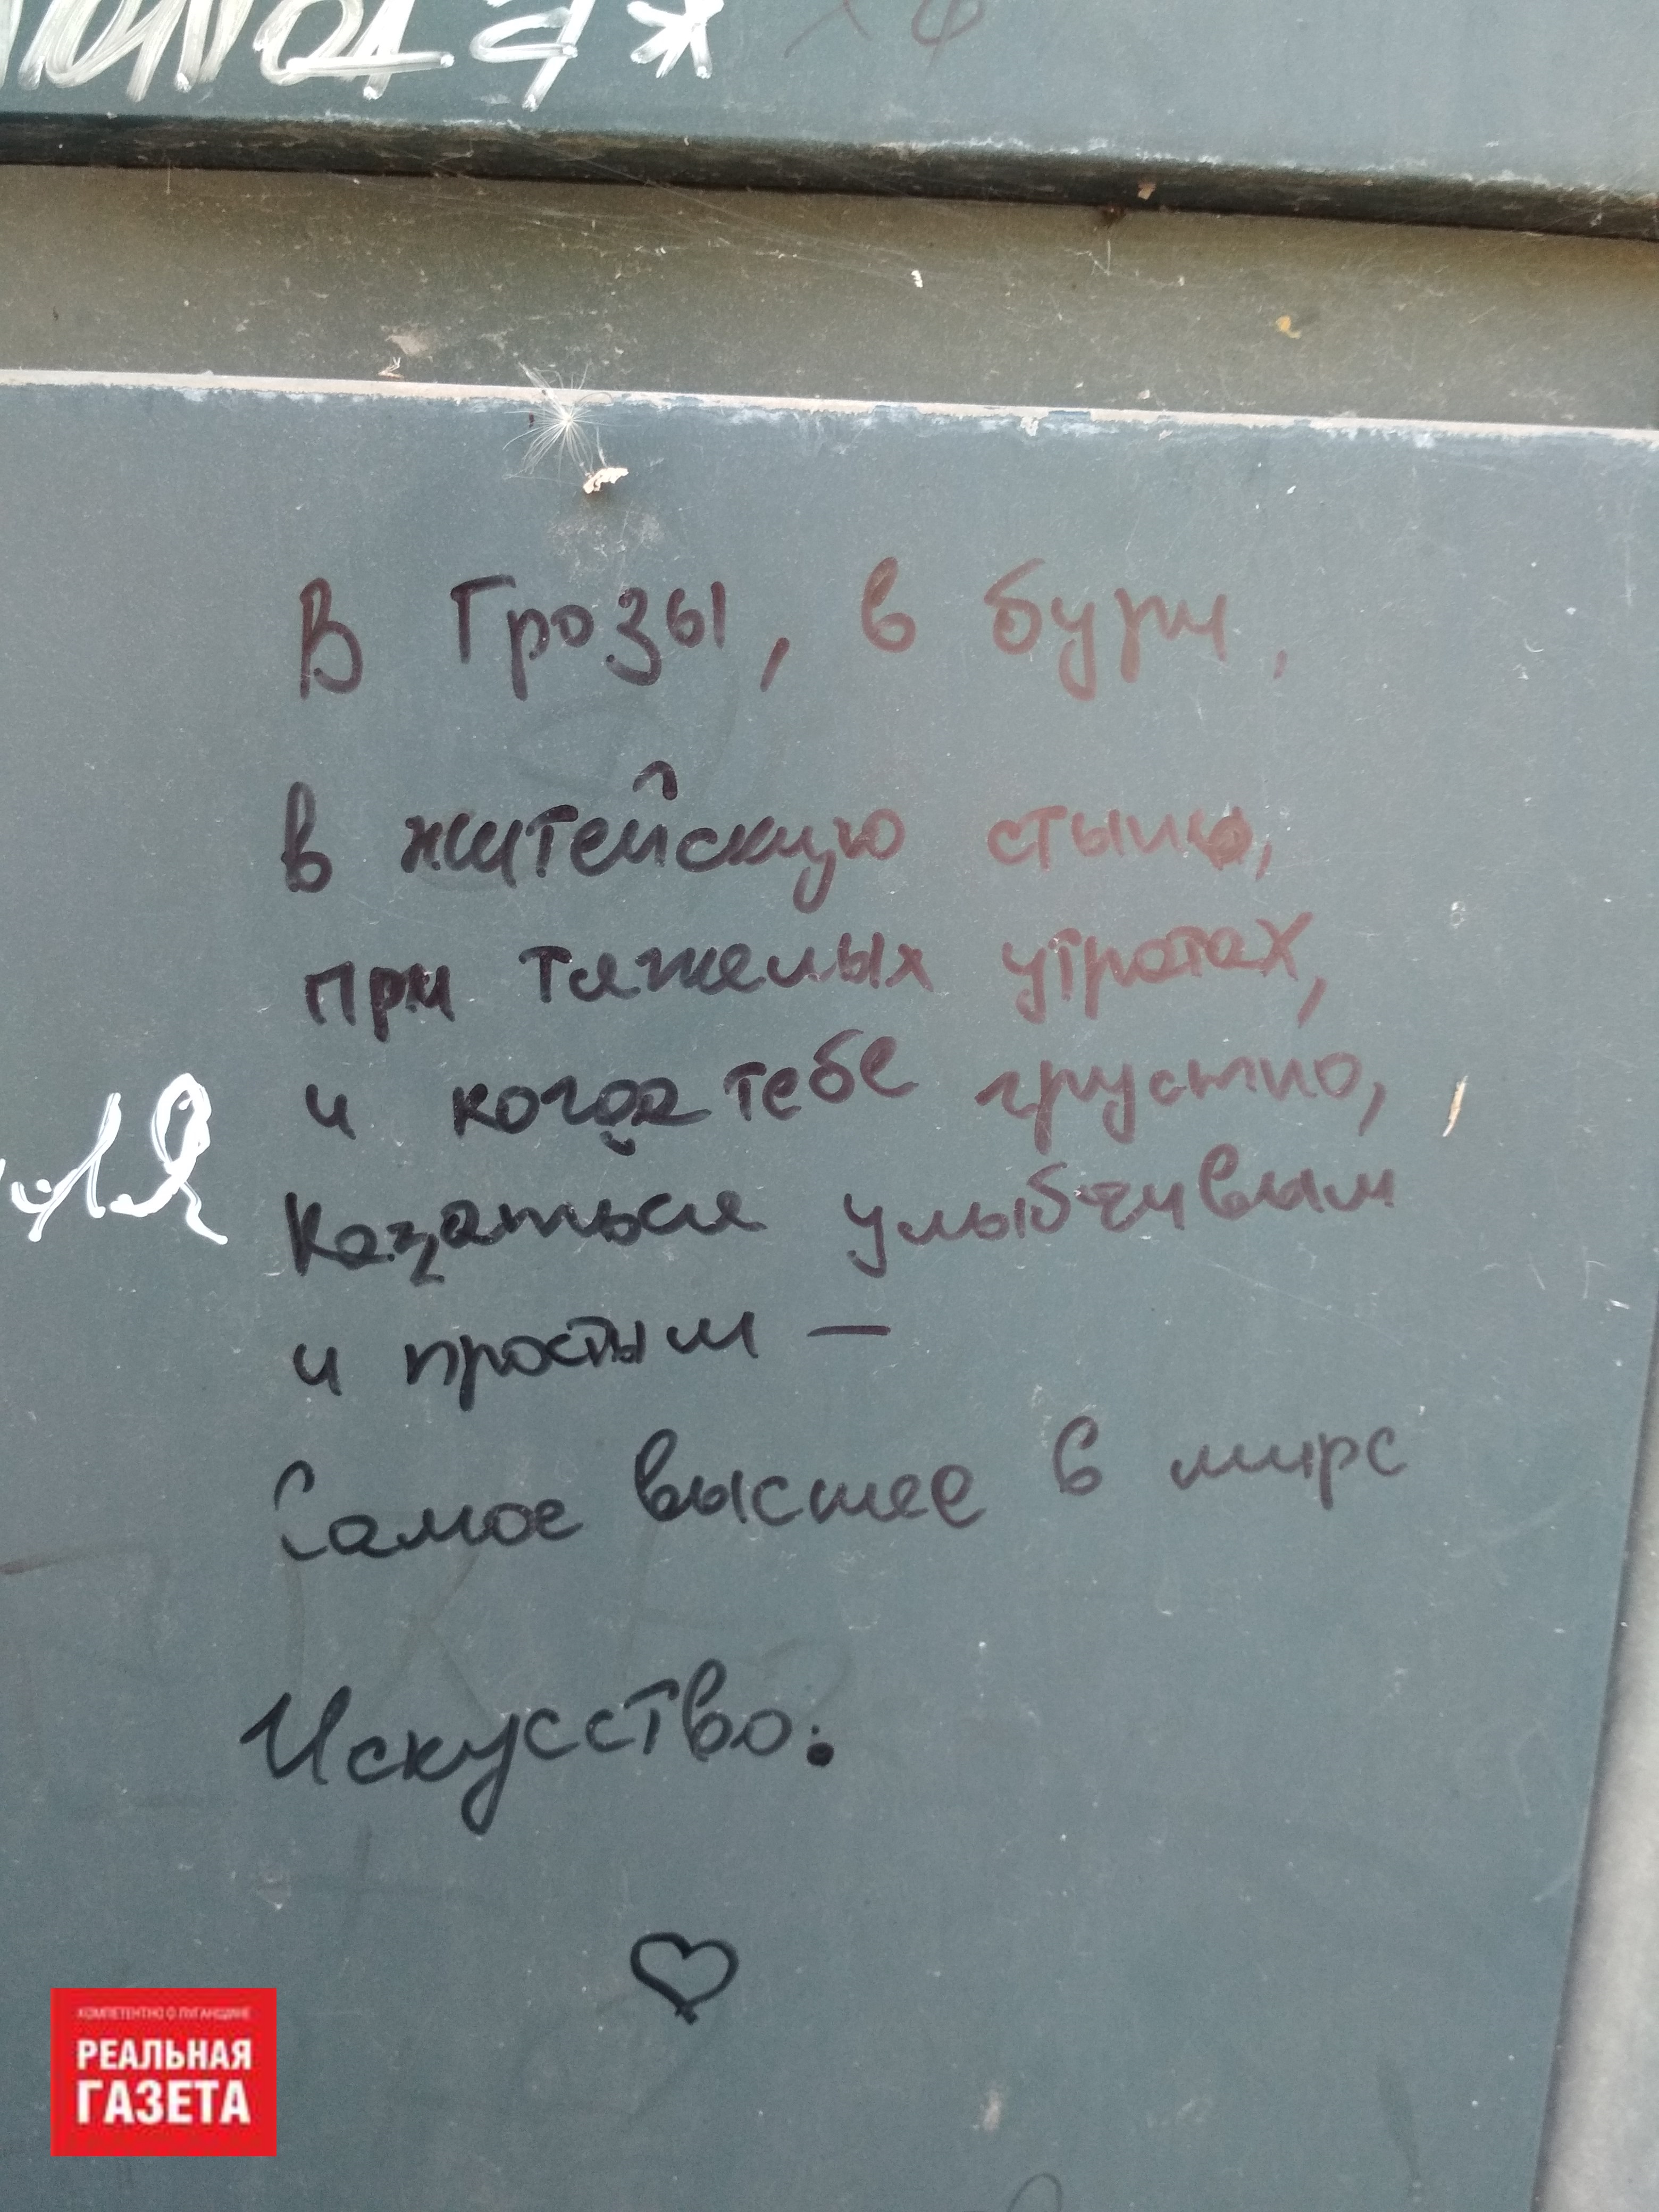 В Грозы, в бури,
в житейскую стынь,
при тяжелых утратах,
и когда тебе грустно,
казаться улыбчивым
и простым —
Самое высшее в мире
Искусство.
КОМПЕТЕНТНО О ЛУГАНЩИНЕ
РЕАЛЬНАЯ
ГАЗЕТА